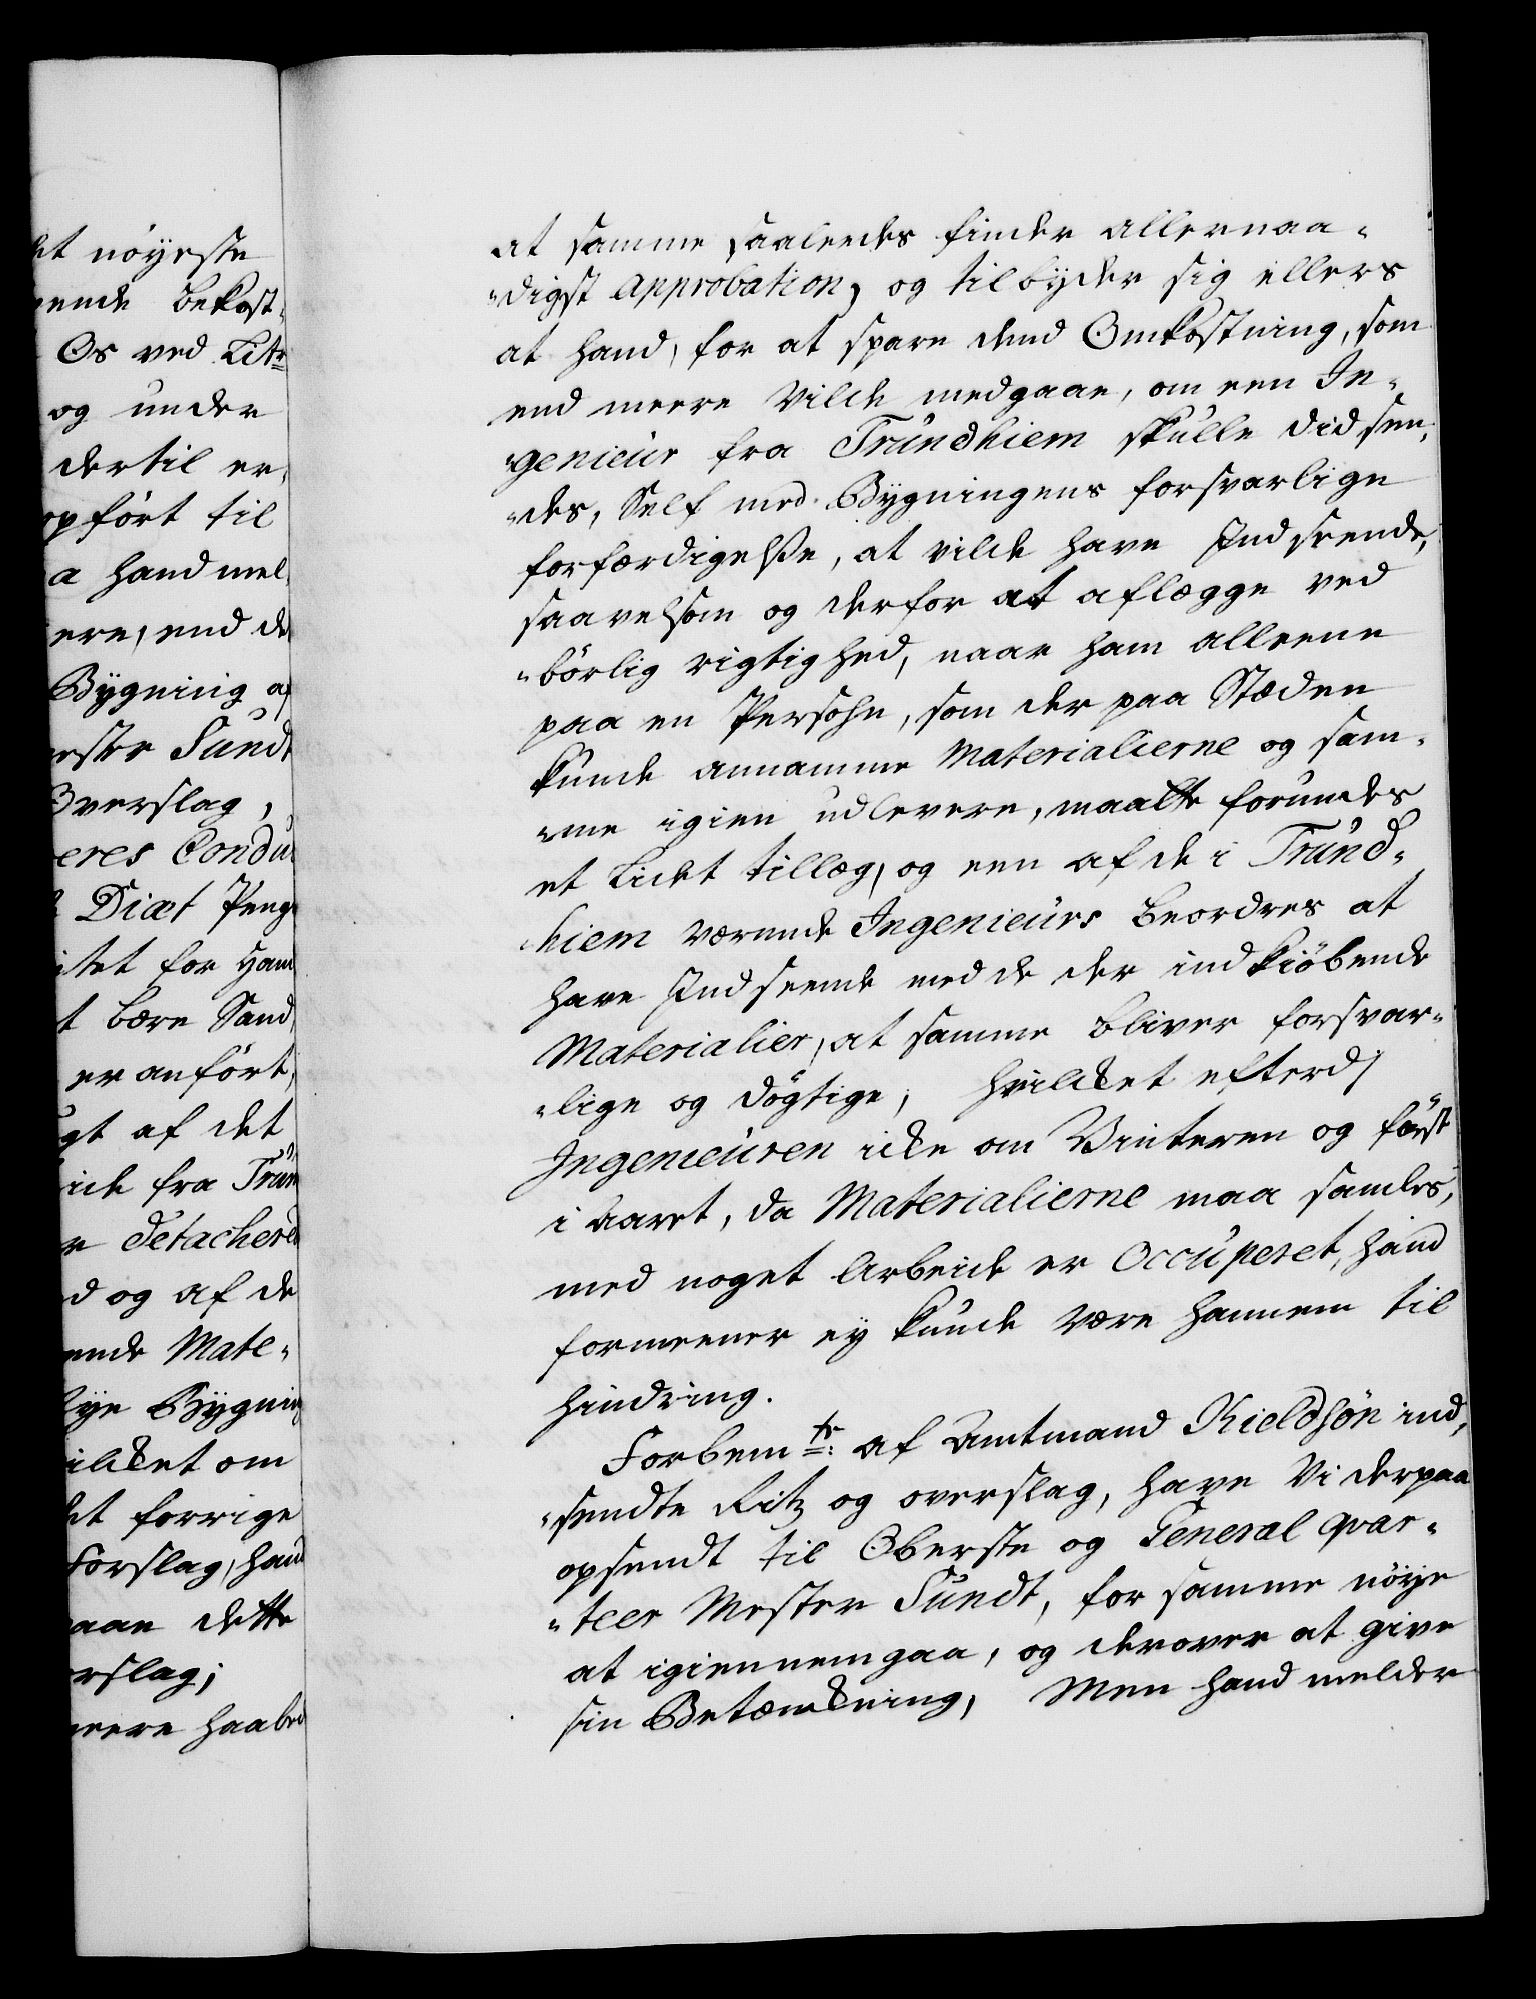 et nöyeste
ende bekost„
Os ved Litr
og under
dertil er„
opfört til
a hand mel„
ere, end de
Bygning af
ester Sundt
Overslag,
eres Condu„
Diæt Penge
itet for ham
t bære Sand„
er anfört,
gt af det
eide fra Trun
r detachered
d og af de
ende Mate„
Nye Bygning
ilket om
et forrige
Forslag, hand
gaae dette
erslag;
meere haabed
at samme saaleedes finder allernaa„
„digst approbation, og tilbyder sig ellers
at hand, for at spare dend Omkostning, som
end meere vilde medgaae, om een In„
„genieur fra Trundhiem skulle did sen„
„des, Self med Bygningens forsvarlige
forfærdigelsse, at vilde have Indseende,
saavelsom og derfor at aflægge ved
„börlig rigtighed, naar ham alleene
paa en Persohn, som der paa Stæden
kunde annamme Materialierne og sam„
„me igien udlevere, maatte forundes
et Lidet tillæg, og een af de i Trund„
hiem værende Ingenieurs beordres at
have Indseende med de der indkiöbende
Materialier, at samme bliver forsvar„
„lige og dögtige, hvilcket efterdj
Ingenieuren icke om Vinteren og först
i Aaret, da Materialierne maa samles,
med noget Arbeide er Occuperet, hand
formeener ey kunde være hannem til
hindring.
Forbemte: af Amtmand Kieldsön ind„
„sendte Ritz og overslag, have Vi derpaa
opsendt til Oberste og General qvar„
„teer Mester Sundt, for samme nöye
at igiennemgaa, og derover at give
sin Betænckning, Men hand melder